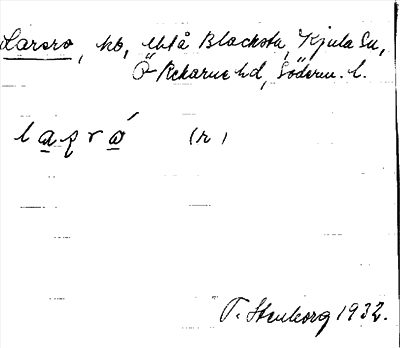 Larsro, hb, utå Blacksta, Kjula sn,
Ö Rekarne hd, Söderm. l.
l a f r ó (n)
T. Stenborg 1932.